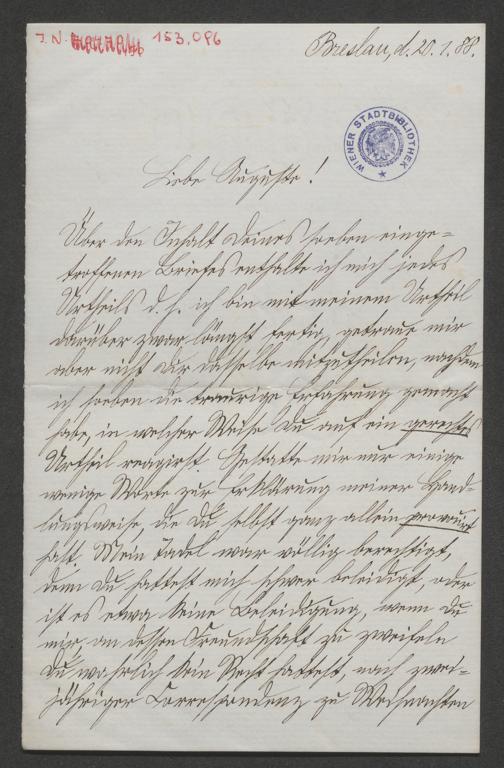 J. N. 153.096
Breslau, d. 20. 1. 88.
WIENER STADTBIBLIOTHEK
Liebe Auguste!
Über den Inhalt Deines soeben einge=
troffenen Briefes enthalte ich mich jedes
Urtheils d. h. ich bin mit meinem Urtheil
darüber zwar längst fertig, getraue mir
aber nicht dir dasselbe mitzutheilen, nachdem
ich soeben die traurige Erfahrung gemacht
habe, in welcher Weise Du auf ein gerechtes
Urtheil reagirst. Gestatte mir nur einige
wenige Worte zur Erklärung meiner Hand-
lungsweise, die Du selbst ganz allein provocirt
hast. Mein Tadel war völlig berechtigt,
denn Du hattest mich schwer beleidigt, oder
ist es etwa keine Beleidigung, wenn Du
mir, an dessen Freundschaft zu zweifeln
Du wahrlich kein Recht hattest, nach zwei=
jähriger Correspondenz zu Weihnachten